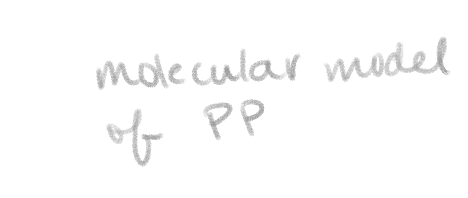 molecular model
of PP